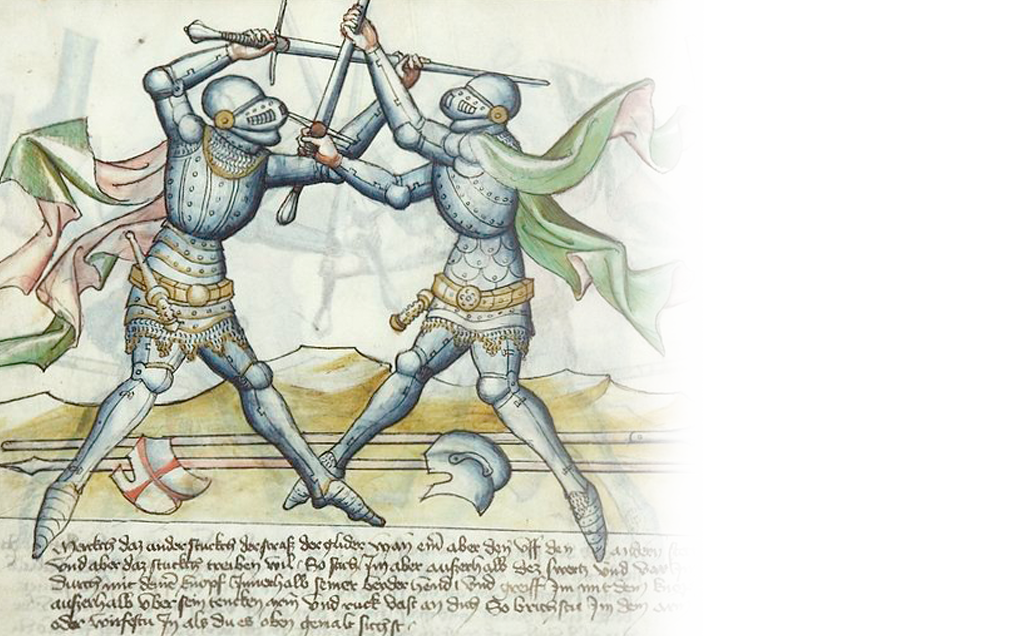 Merckch daz ander stuckch der straß der glider wan ein aber den uff den andern
Und aber daz stuckch treiben wil So far Im aber außerhalb dez swertz und
Durch mit deinē knopf Innerhalb seiner beder hend und greiff Im mit dem
außerhalb über sein rencken arm und ruck vast an dich So brichstu Im den
oder wirfestu In als du es oben gemalt sichst